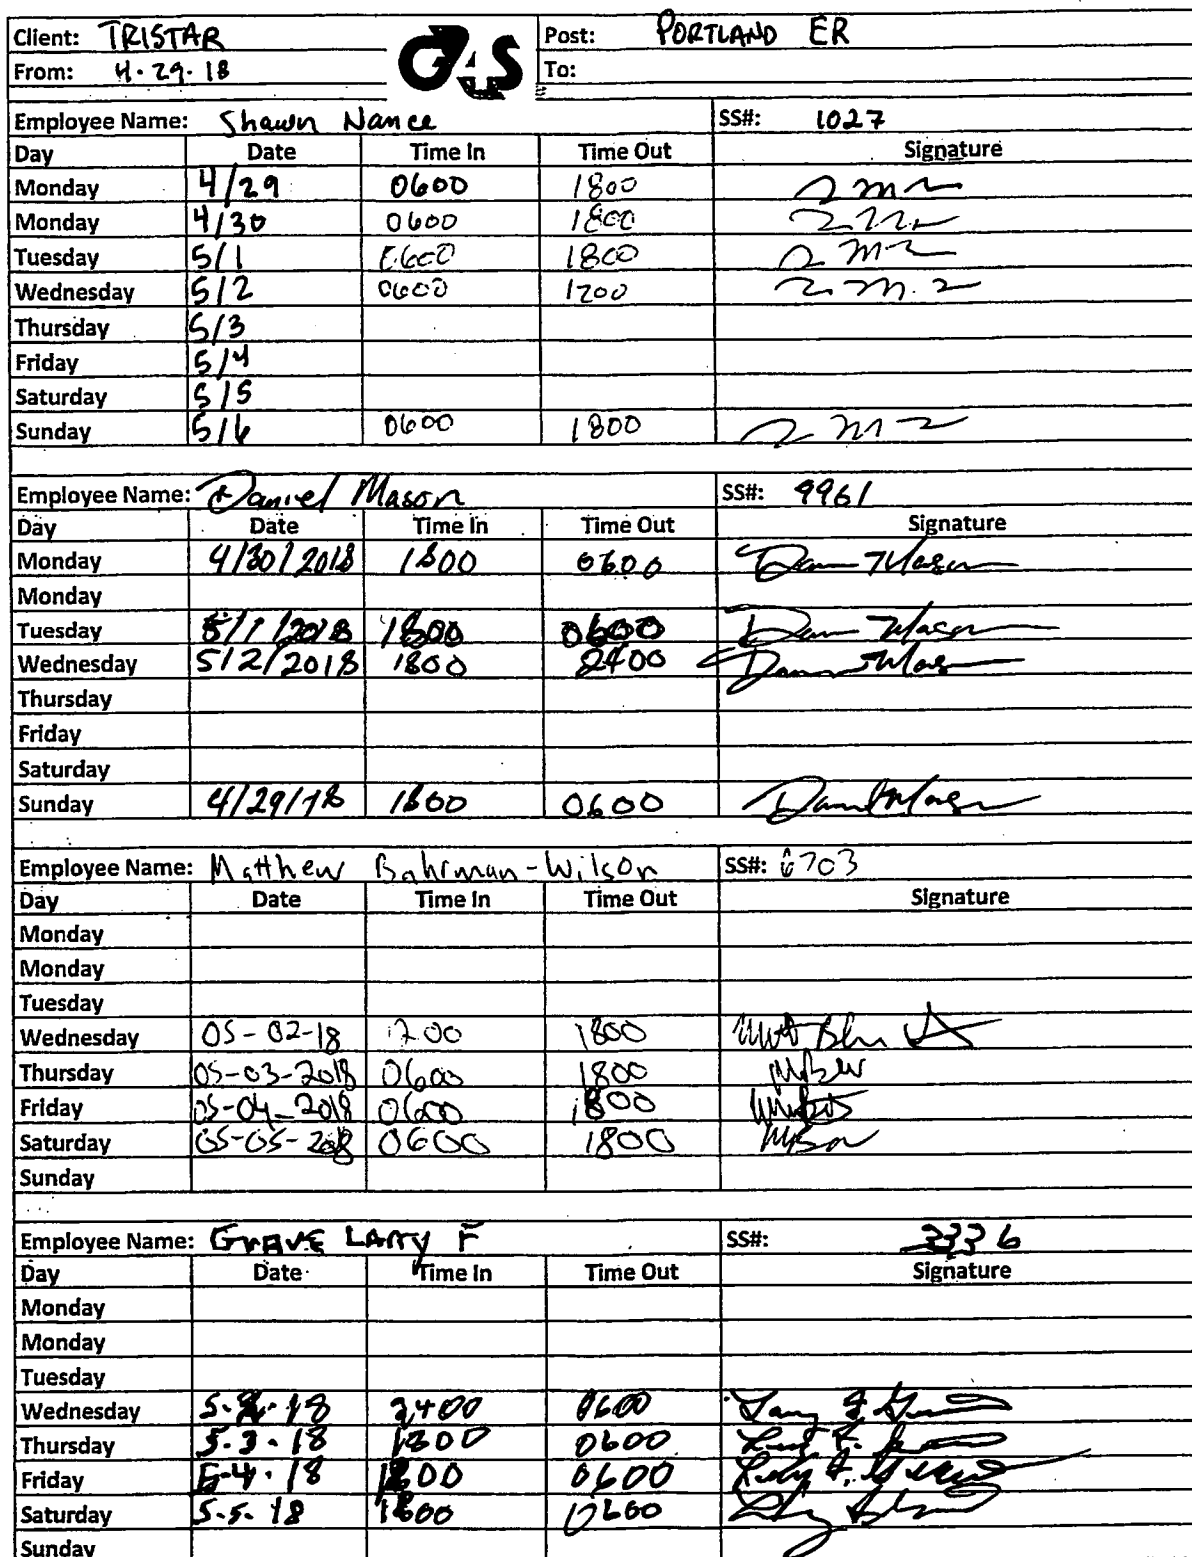 Client: TRISTAR G4S Post: PORTLAND ER
From: 4.29.18 To:
Employee Name: Shawn Nance SS#: 1027
Day Date Time In Time Out Signature
Monday 4/29 0600 1800
Monday 4/30 0600 1800
Tuesday 5/1 0600 1800
Wednesday 5/2 0600 1200
Thursday 5/3
Friday 5/4
Saturday 5/5
Sunday 5/6 0600 1800
Employee Name: Daniel Mason SS#: 9961
Day Date Time In Time Out Signature
Monday 4/30/2018 1800 0600 Dan Mason
Monday
Tuesday 5/1/2018 1800 0600 Dan Mason
Wednesday 5/2/2018 1800 2400 Dan Mason
Thursday
Friday
Saturday
Sunday 4/29/18 1800 0600 Daniel Mason
Employee Name: Matthew Bahrman-Wilson SS#: 6703
Day Date Time In Time Out Signature
Monday
Monday
Tuesday
Wednesday 05-02-18 1200 1800
Thursday 05-03-2018 0600 1800
Friday 05-04-2018 0600 1800
Saturday 05-05-2018 0600 1800
Sunday
Employee Name: Grave Larry F SS#: 3336
Day Date Time In Time Out Signature
Monday
Monday
Tuesday
Wednesday 5.2.18 2400 0600
Thursday 5.3.18 1800 0600
Friday 5-4.18 1800 0600
Saturday 5.5.18 1800 0600
Sunday